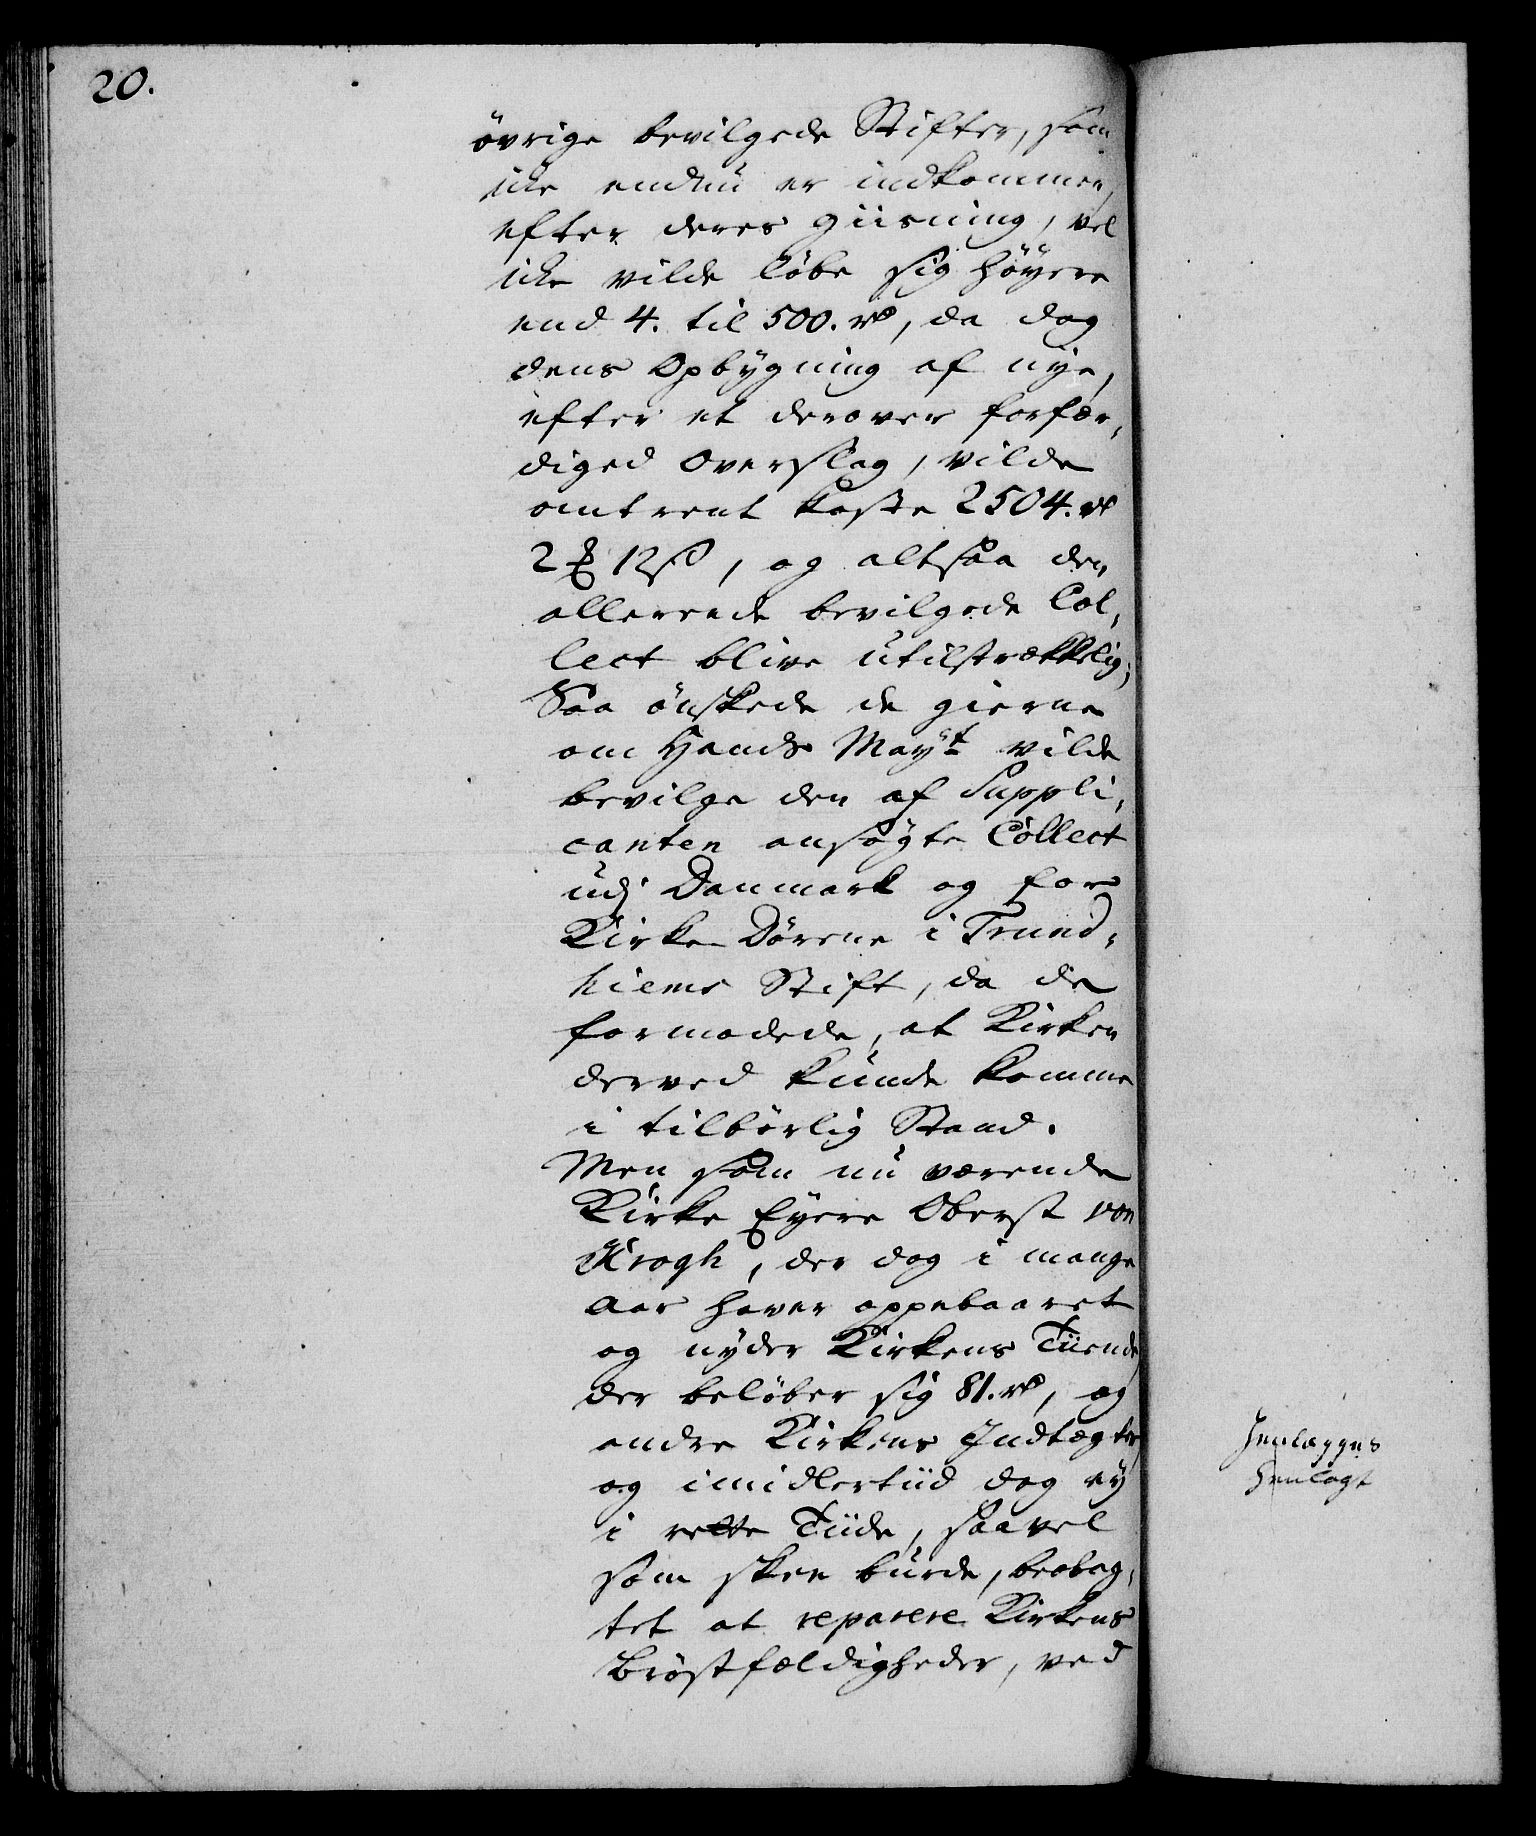 20.
övrige bevilgede Stifter, som
icke endnu er indkommen,
efter deres giisning, vel
icke vilde löbe sig höyere
end 4. til 500. rd, da dog
dens Opbygning af nye,
efter et derover forfær,
diged Overslag, vilde
omtrent koste 2504. rd
2 ₻ 12 ß, og altsaa den
allerede bevilgede Col,
lect blive utilstrækkelig;
Saa önskede de gierne
om Hands Mayt vilde
bevilge den af Suppli,
canten ansögte Collect
udj Danmark og for
Kirke Dörene i Trund,
hiems Stift, da de
formodede, at Kirken
derved kunde komme
i tilbörlig Stand.
Men som nu værende
Kirke Eyere Oberst von
Krogh, der dog i mange
Aar haver oppebaaret
og nyder Kirkens Tiende
der belöber sig 81. rd, og
andre Kirkens Indtægter,
og imidlertiid dog ey
i rette Tiide, saavel
som skee burde, beobag,
tet at reparere Kirkens
Bröstfældigheder, ved
Henlægges
Henlagt